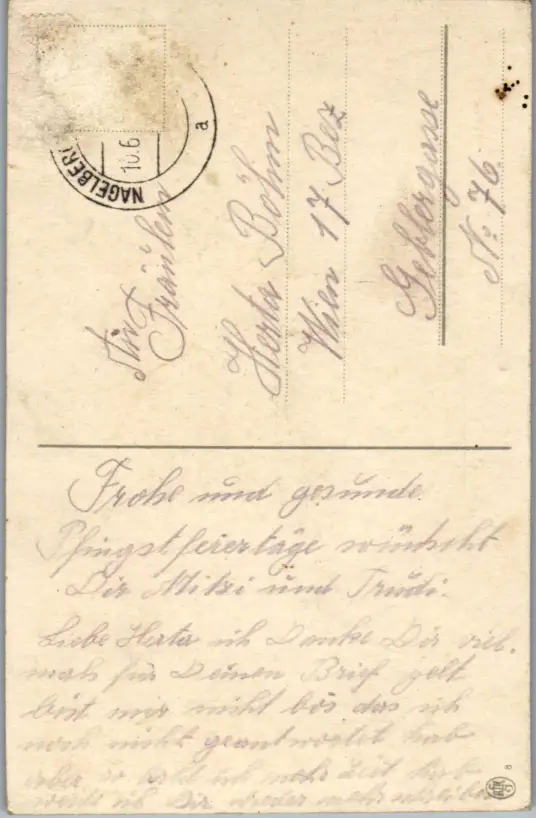 NAGELBERG
10.6
a
Für
Fräulein
Herta Böhm
Wien 17 Bez
Geblergasse
No 76
Frohe und gesunde
Pfingstfeiertage wünscht
Dir Mitzi und Trudi.
Liebe Herta ich Danke Dir viel-
mals für Deinen Brief gelt
bist mir nicht bös das ich
noch nicht geantwortet hab
aber so bald ich mehr Zeit hab
werde ich Dir wieder mehr schreiben
8